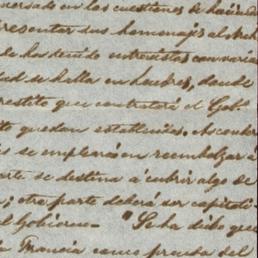 versado en las cuestiones de hacienda
presentar sus homenajes al Arch
ha tenido entrevistas con varia
se halla en Londres, donde
prestito que contratará el Gobo
to quedan establecidas. Al contra
se emplearán en reembolzar a
arte se destina á cubrir algo de
; otra parte deberá ser capitali-
el Gobierno- "Se ha dicho que
a Francia como prueba del